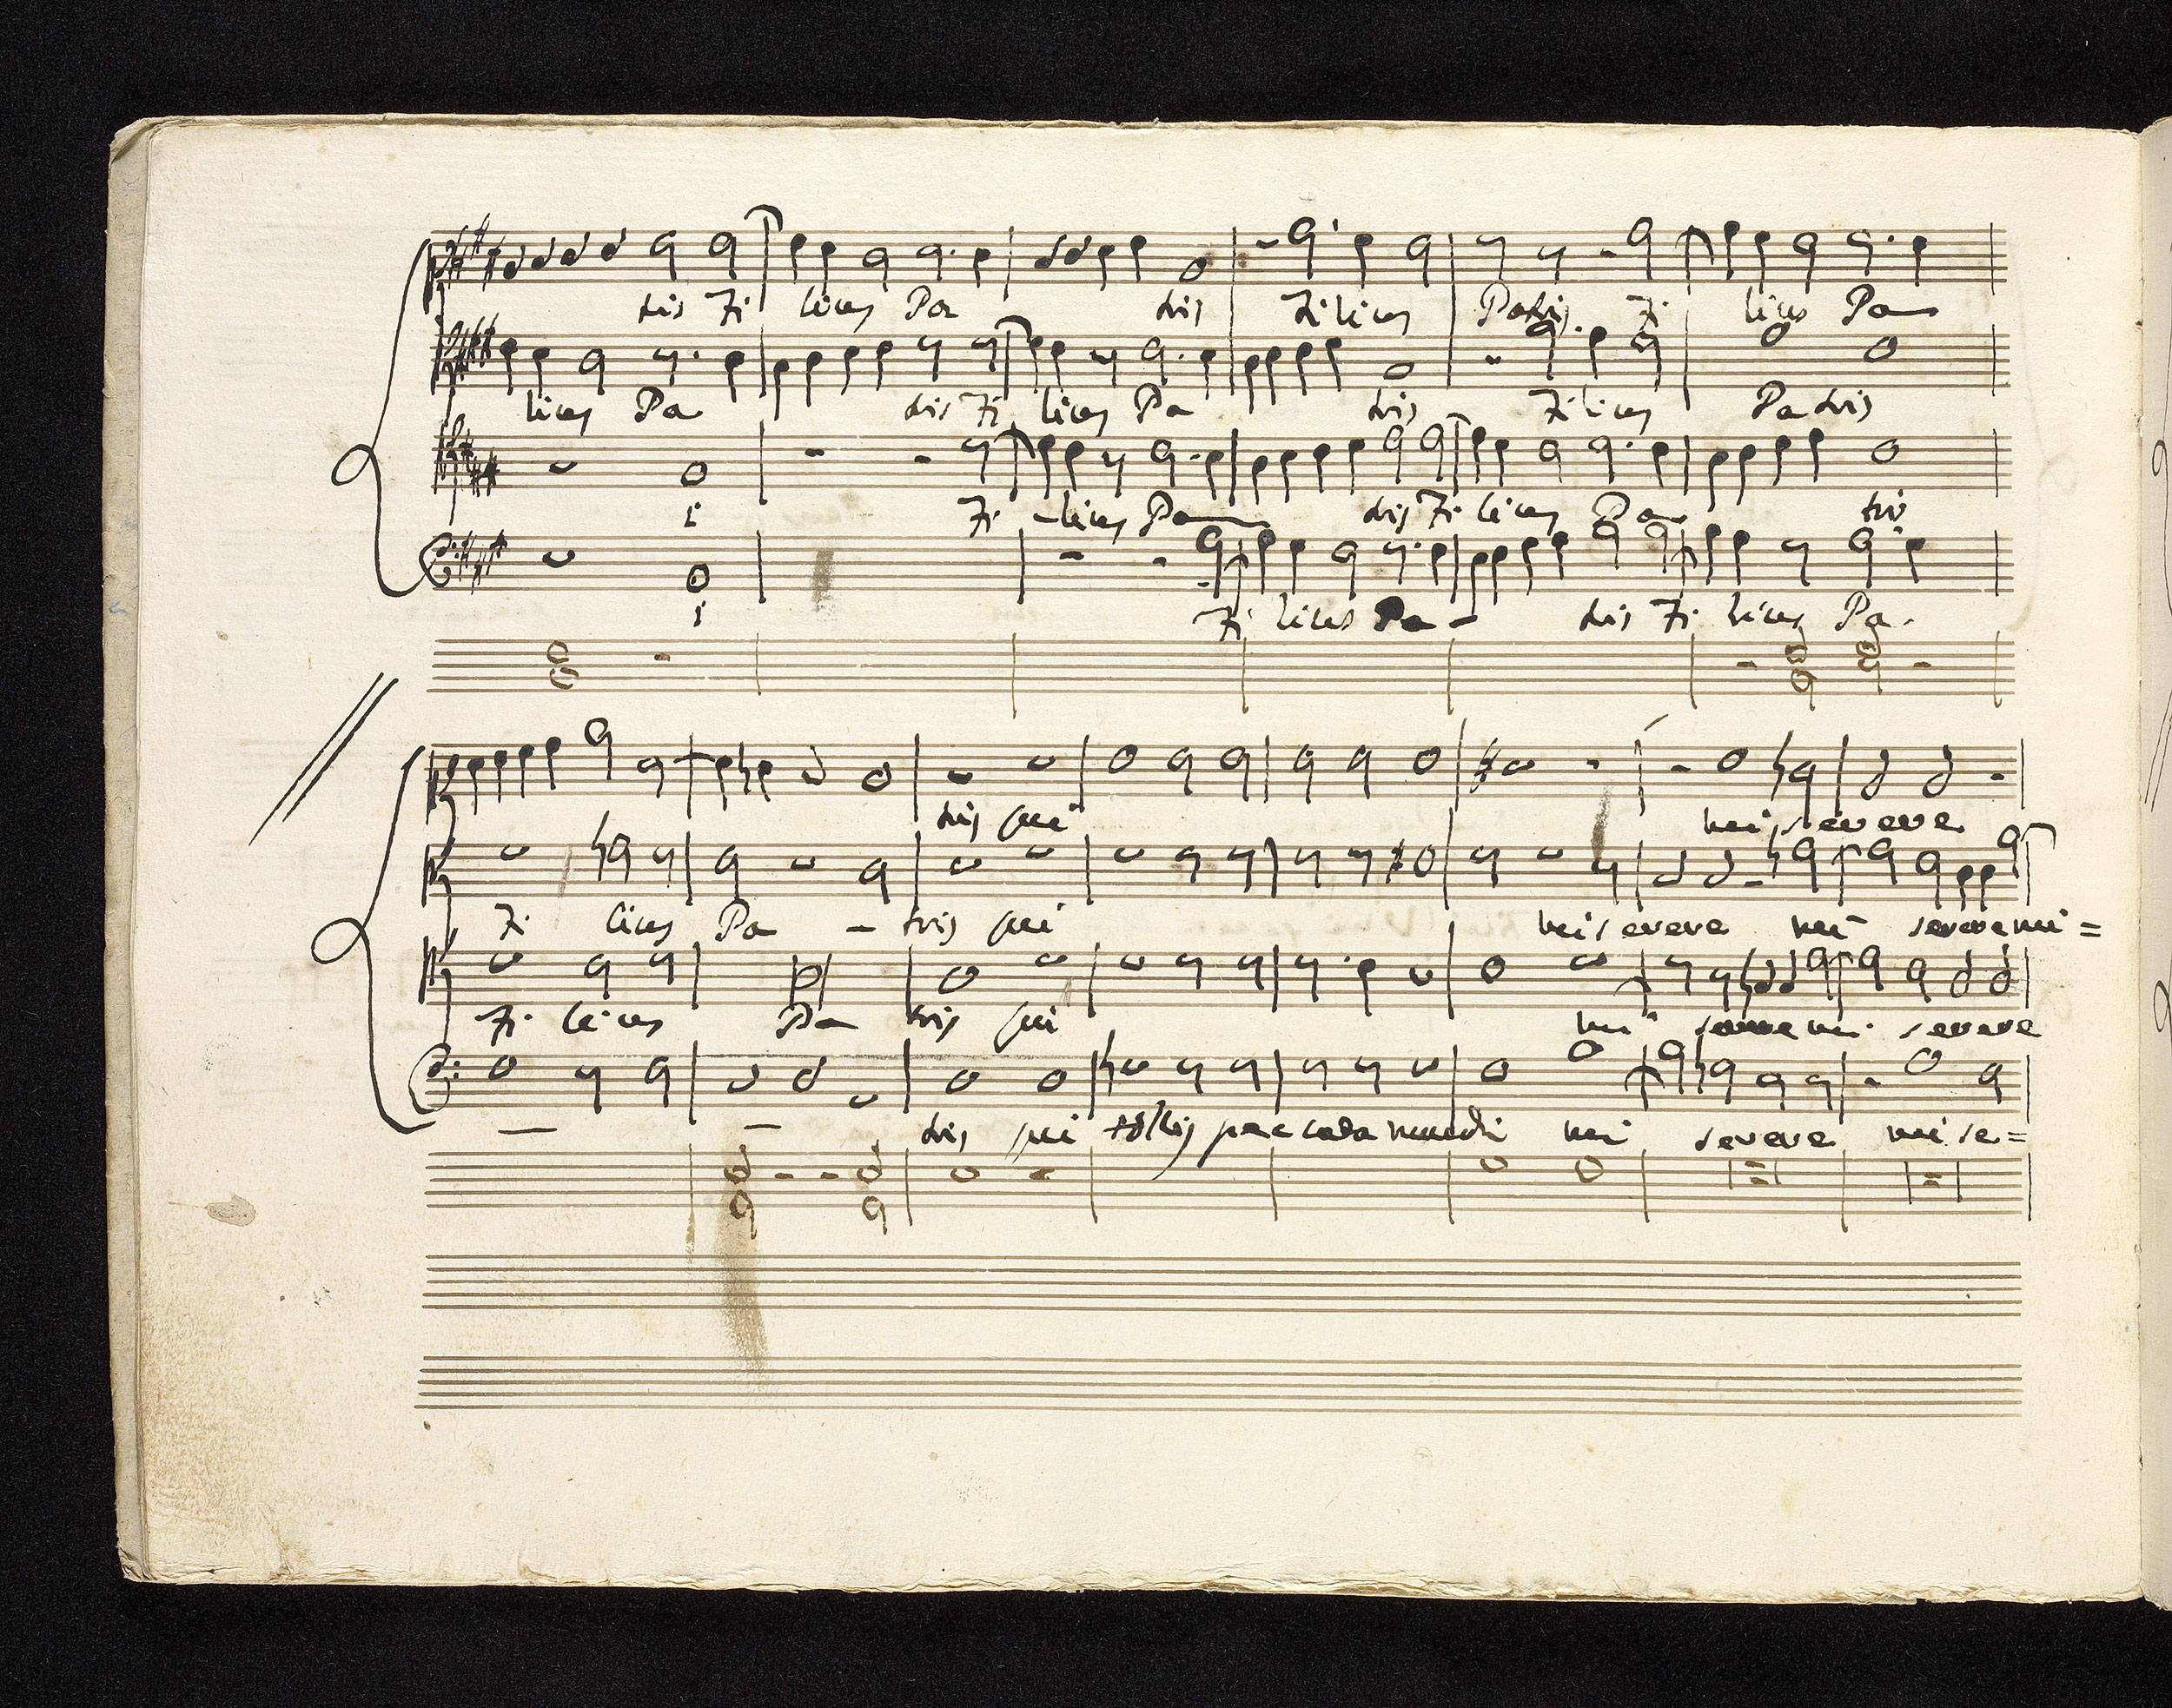 tris Fi lius Pa tris Filius Patris Fi lius Pa
lius Pa tris Fi lius Pa tris Filius Pa tris
i Fi - lius Pa tris Fi lius Pa tris
i Fi lius Pa - tris Fi lius Pa.
tris qui mi serere
Fi lius Pa - tris qui miserere mi serere mi =
Fi lius Pa tris qui mi serere mi serere
tris qui tollis peccata mundi mi serere mi se =